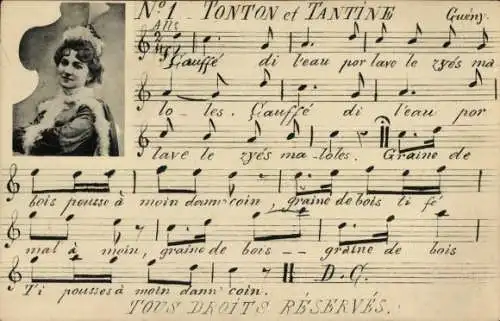 No. 1 - TONTON et TANTINE Guény.
Allo
Çauffé di l'eau por lave le zyés ma
lo - les. Çauffé di l'eau por
lave le zyés ma-loles. Graine de
bois pousse à moin dann' coin, graine de bois ti fé
mal à moin, graine de bois -- graine de bois
Ti pousses à moin dann' coin. D.C.
TOUS DROITS RÉSERVÉS.